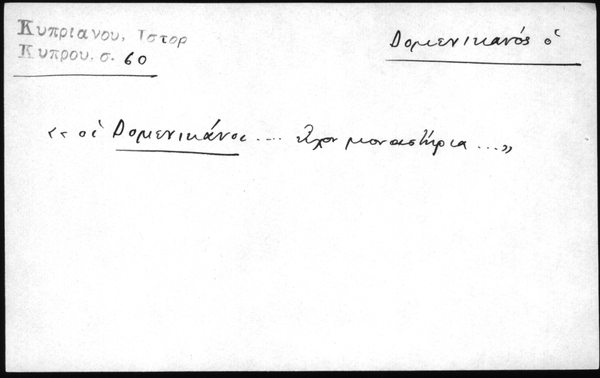 Κυπριανου, Ιστορ
Κυπρου, σ. 60
Δομενικανός ὁ
«οἱ Δομενικάνοι .... εἶχον μοναστήρια ...»